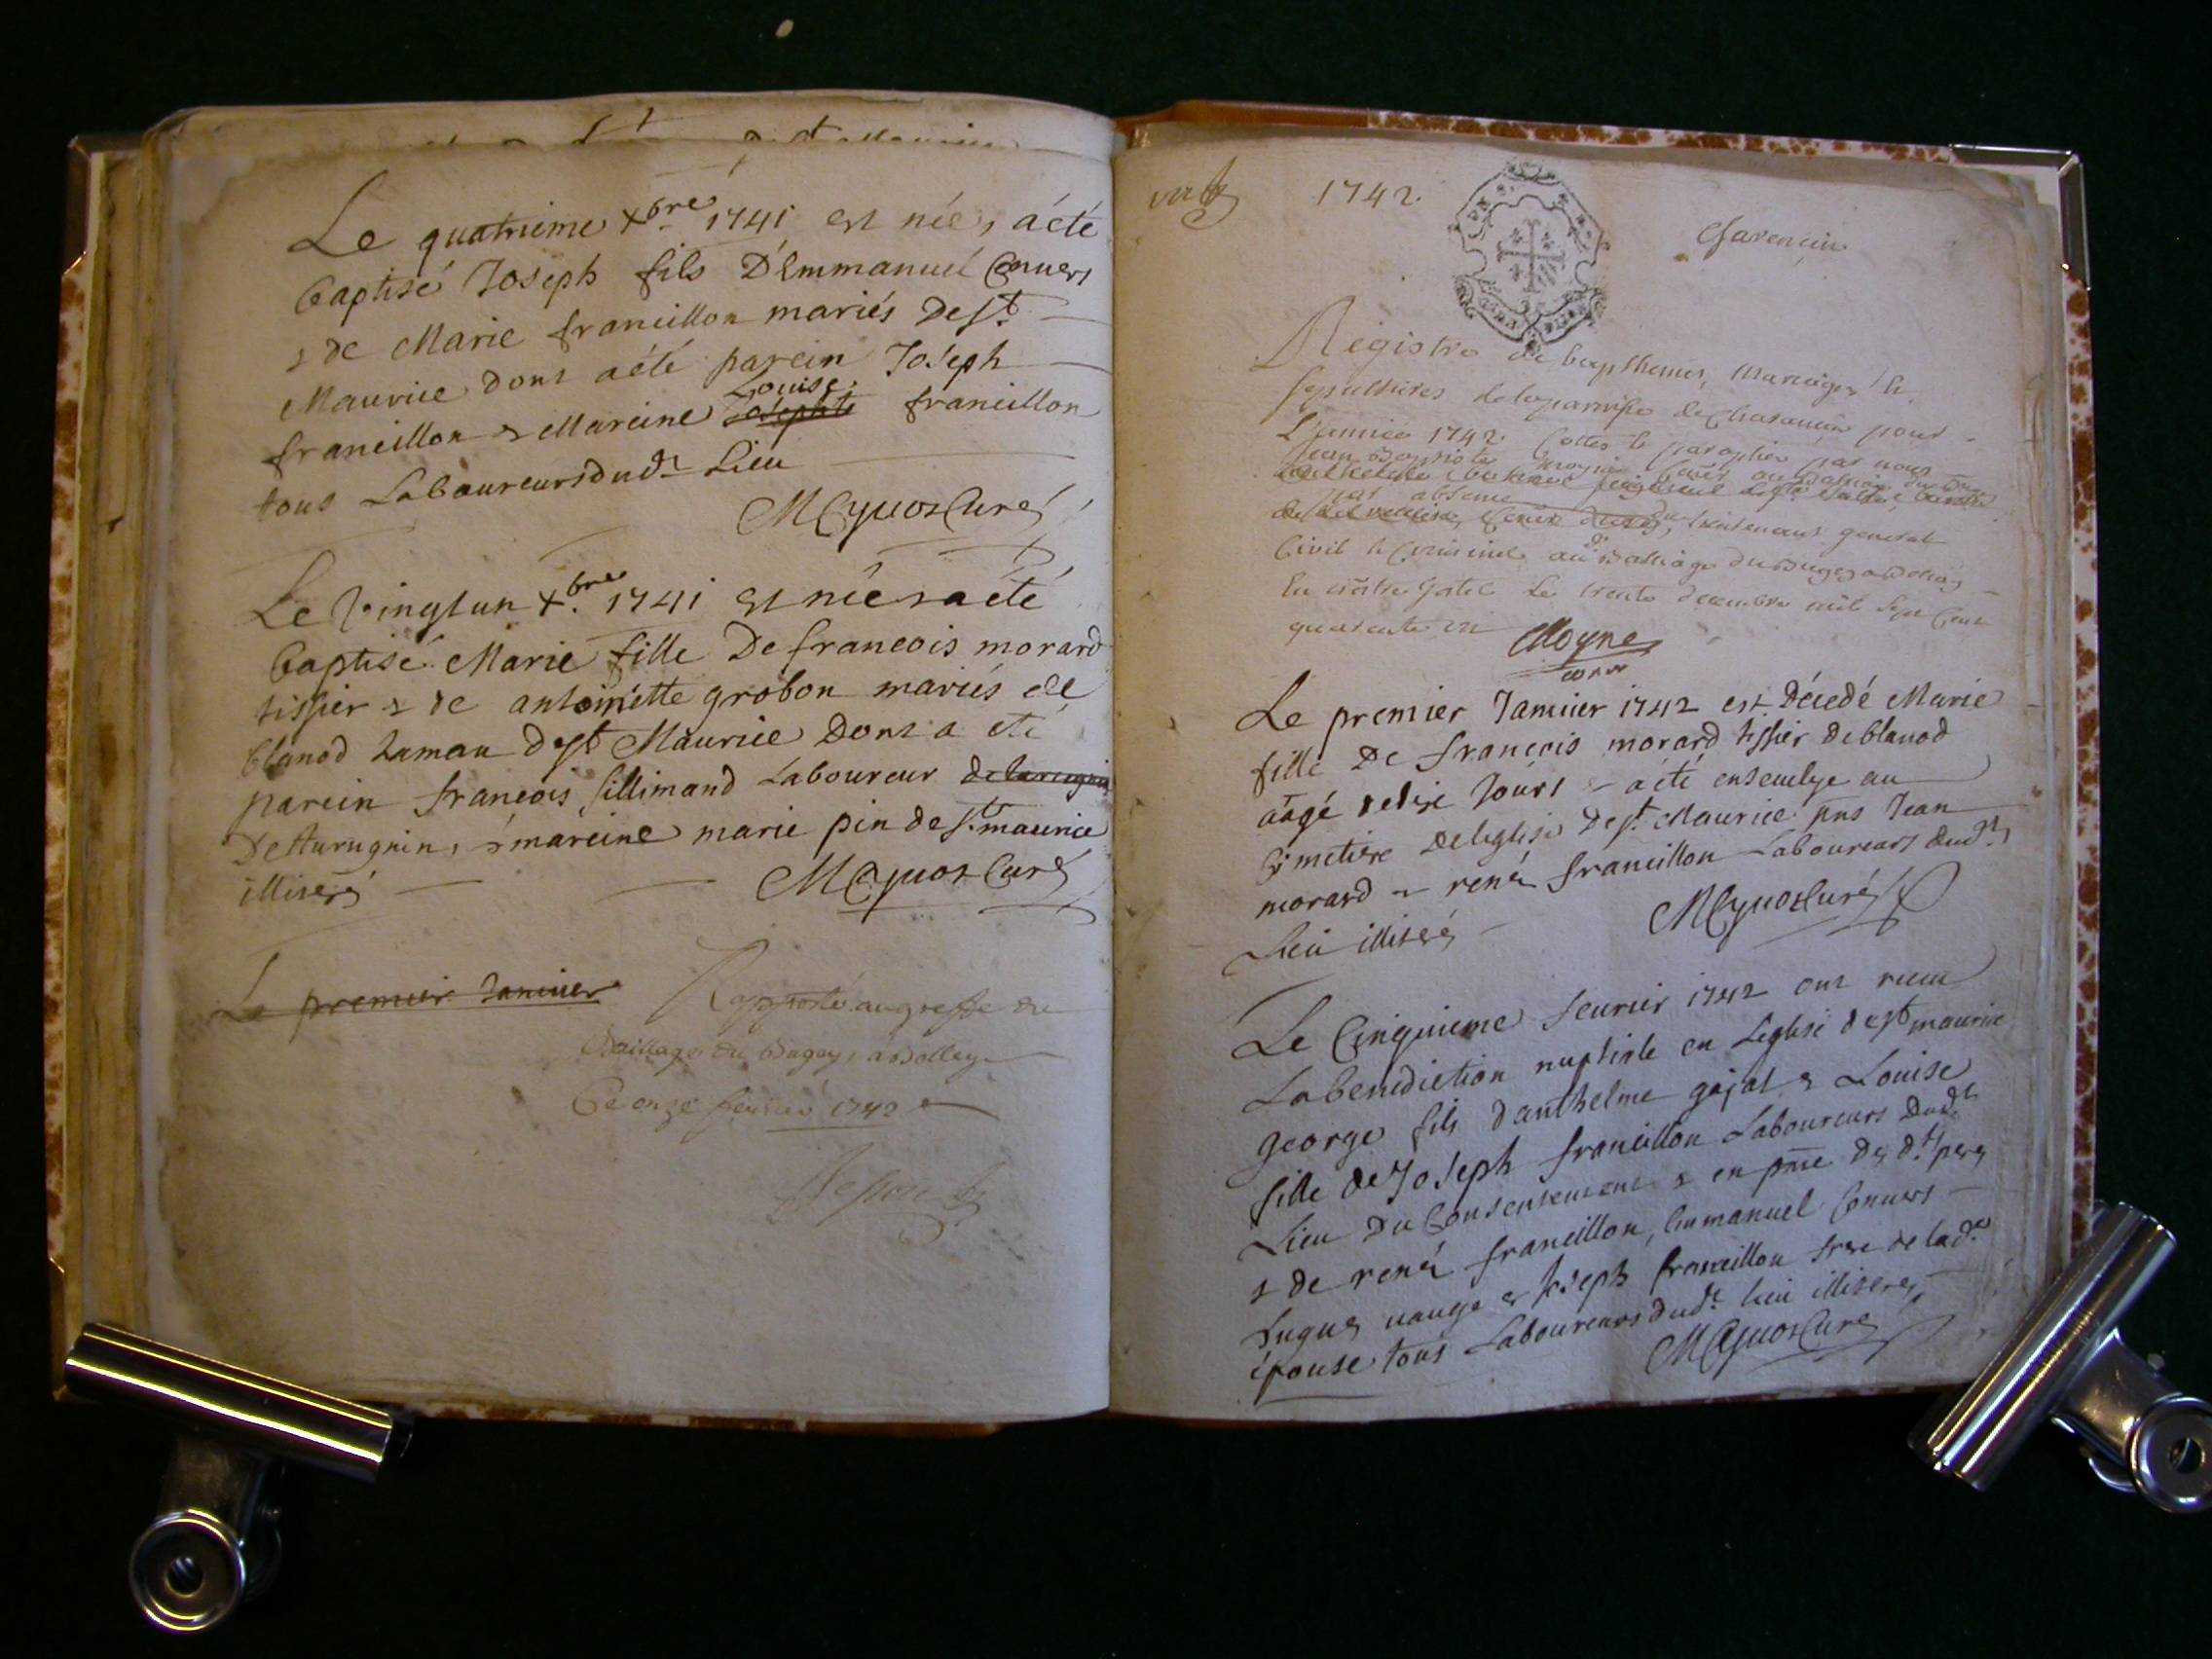 Le quatrieme xbre 1741 est née, a été
baptisé Joseph fils D'Emmanuel Convers
& de Marie francillon mariés de st
Maurice dont a été parein Joseph
Louise
francillon & Mareine Josephte francillon
tous Laboureurs dudt Lieu
Curé
Le vingtun xbre 1741 est née & a été
baptisé Marie fille De francois morard
tissier & de antoinette grobon mariés de
blanod hamau de st Maurice Dont a eté
parein francois fillimand Laboureur
De , & mareine marie pin de st maurice
illiterés
Curé
Le premier Janvier
Rapporté au greffe du
Bailliage du Bugey, a Belley
Ce onze fevrier 1742
1742.
Charencin
Registre de bapthemes, Mariages &
sepultures de la parroisse de Charancin pour
L'année 1742. Cottés & paraphés par nous
Jean Baptiste
par absence lieutenant general
Civil & Criminel au Bailliage du Bugey a Belley
En nôtre hotel Le trente decembre mil sept cent
quarente un
Moyne
Le premier Janvier 1742 est Décedé Marie
fille De françois morard tissier de blanod
aagé de dix Jours & a été ensevelye au
Cimetiere de leglise De st Maurice pns Jean
morard & rené francillon Laboureurs dudt
Lieu illiterés
Curé
Le Cinquieme fevrier 1742 ont receu
La benediction nuptiale en Leglise de st maurice
george fils d'anthelme gojat & Louise
fille de Joseph francillon Laboureurs Dudt
Lieu Du Consentement & en pnce des dts peres
& de rené francillon, Emmanuel Convers
hugues & Joseph francillon frere de lade
épouse tous Laboureurs dudt lieu illiterés
Curé